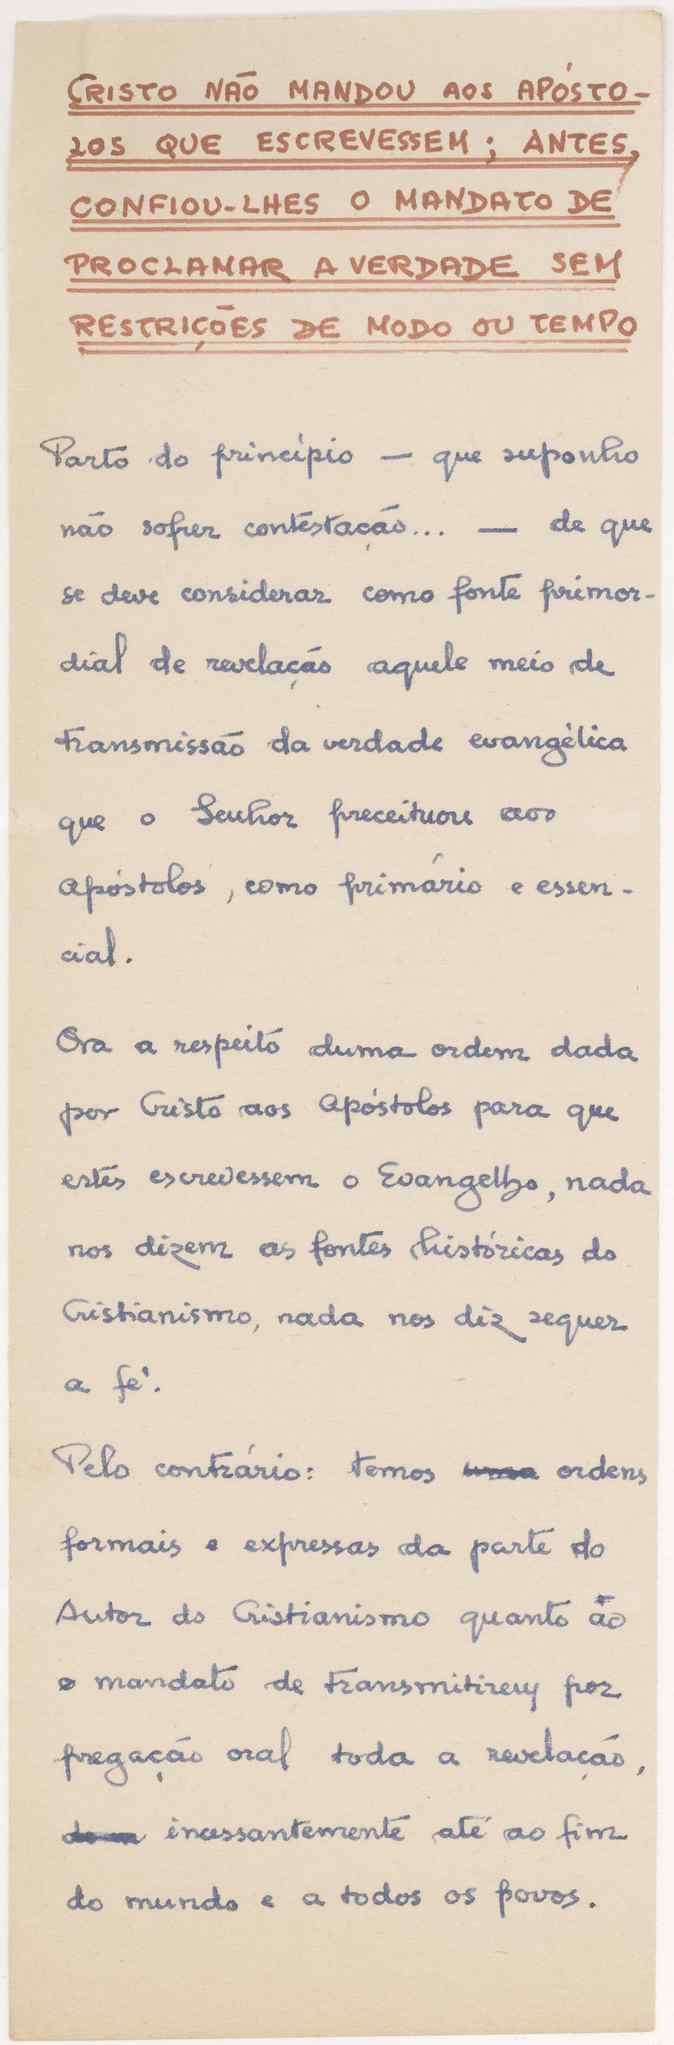 CRISTO NÃO MANDOU AOS APÓSTO-
LOS QUE ESCREVESSEM; ANTES,
CONFIOU-LHES O MANDATO DE
PROCLAMAR A VERDADE SEM
RESTRIÇÕES DE MODO OU TEMPO
Parto do princípio — que suponho
não sofrer contestação... — de que
se deve considerar como fonte primor-
dial de revelação aquele meio de
transmissão da verdade evangélica
que o Senhor preceituou aos
Apóstolos, como primário e essen-
cial.
Ora a respeito duma ordem dada
por Cristo aos Apóstolos para que
estes escrevessem o Evangelho, nada
nos dizem as fontes históricas do
Cristianismo, nada nos diz sequer
a fé.
Pelo contrário: temos ordens
formais e expressas da parte do
Autor do Cristianismo quanto ao
o mandato de transmitirem por
pregação oral toda a revelação,
incessantemente até ao fim
do mundo e a todos os povos.